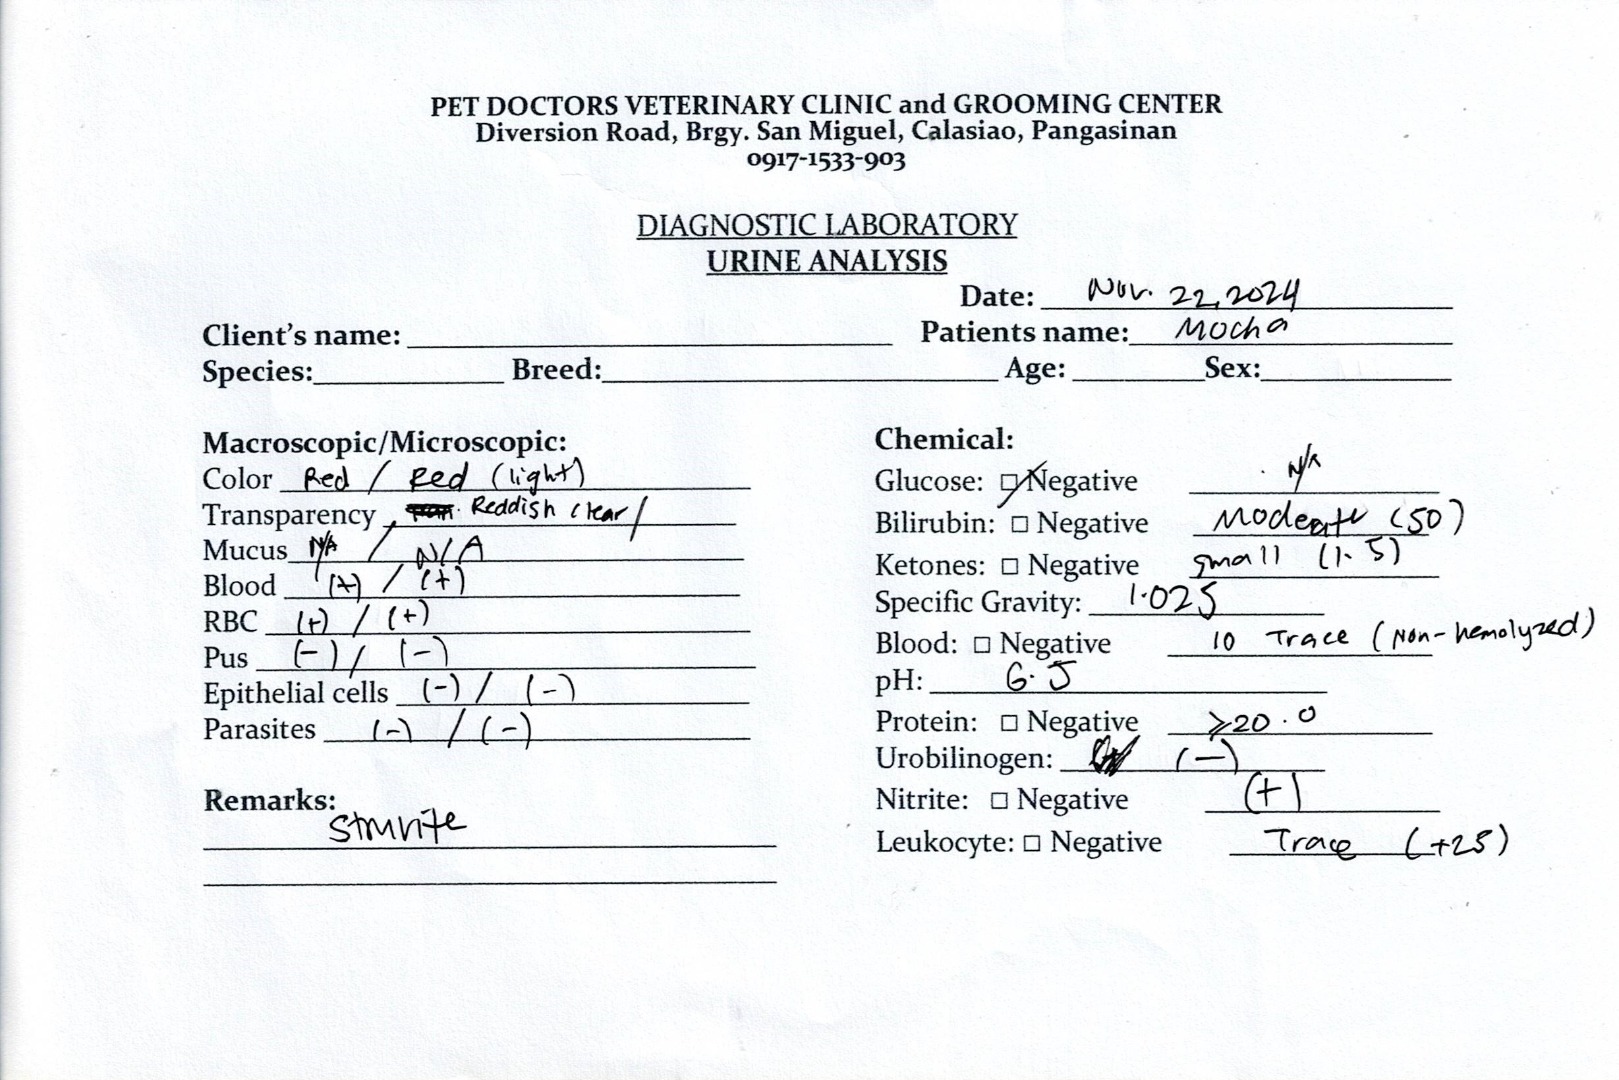 PET DOCTORS VETERINARY CLINIC and GROOMING CENTER
Diversion Road, Brgy. San Miguel, Calasiao, Pangasinan
0917-1533-903
DIAGNOSTIC LABORATORY
URINE ANALYSIS
Date: Nov. 22, 2024
Client's name: Patients name: Mocha
Species: Breed: Age: Sex:
Macroscopic/Microscopic:
Color Red / Red (light)
Transparency Reddish clear /
Mucus N/A / N/A
Blood (+) / (+)
RBC (+) / (+)
Pus (-) / (-)
Epithelial cells (-) / (-)
Parasites (-) / (-)
Remarks:
Struvite
Chemical:
Glucose: ☑ Negative N/A
Bilirubin: □ Negative Moderate (50)
Ketones: □ Negative small (1.5)
Specific Gravity: 1.025
Blood: □ Negative 10 Trace (Non-hemolyzed)
pH: 6.5
Protein: □ Negative ≥20.0
Urobilinogen: (-)
Nitrite: □ Negative (+)
Leukocyte: □ Negative Trace (+25)